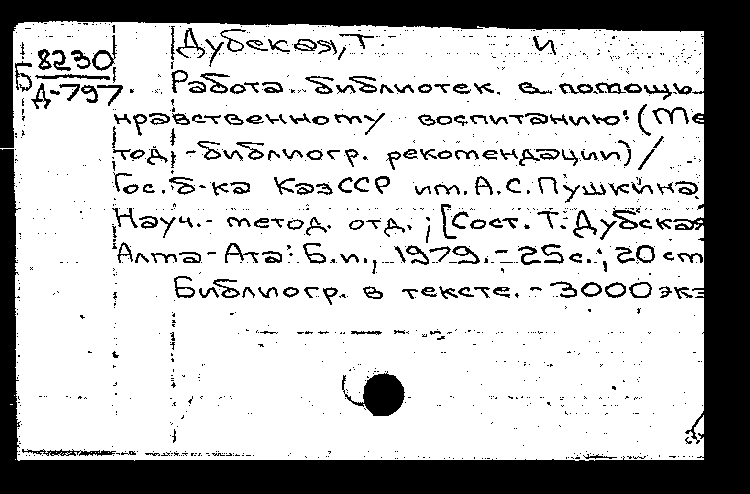 Дубская, Т. и
Б 8230
Д-797.
Работа библиотек в помощь
нравственному воспитанию: (Ме
тод.-библиогр. рекомендации) /
Гос. б-ка КазССР им. А.С. Пушкина.
Науч.-метод. отд.; [Сост. Т. Дубская
Алма-Ата: Б.и., 1979. - 25 с.; 20 см
Библиогр. в тексте. - 3000 экз